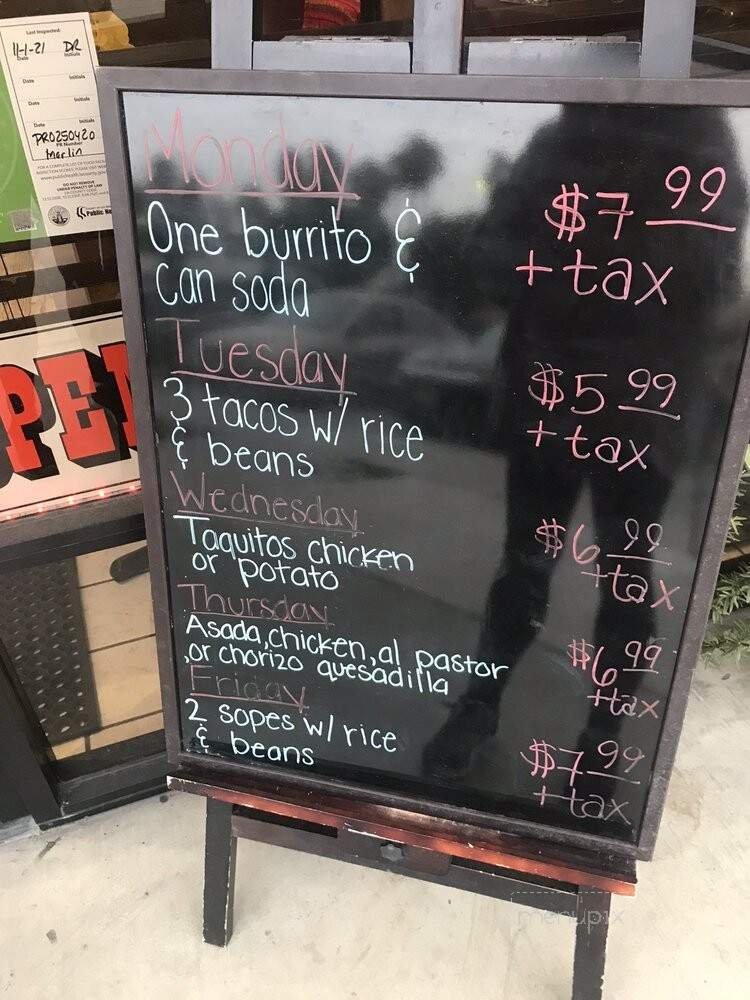 Last Inspected:
11-1-21 DR
Date Initials
Date Initials
Date Initials
Date Initials
PR0250420
PR Number
Merlin
DO NOT REMOVE
UNDER PENALTY OF LAW
Public
PEN
Monday
One burrito & $7 99
can soda + tax
Tuesday
3 tacos w/ rice $5 99
& beans + tax
Wednesday
Taquitos chicken $6 99
or potato + tax
Thursday
Asada, chicken, al pastor $6 99
, or chorizo quesadilla + tax
Friday
2 sopes w/ rice $7 99
& beans + tax
menupix